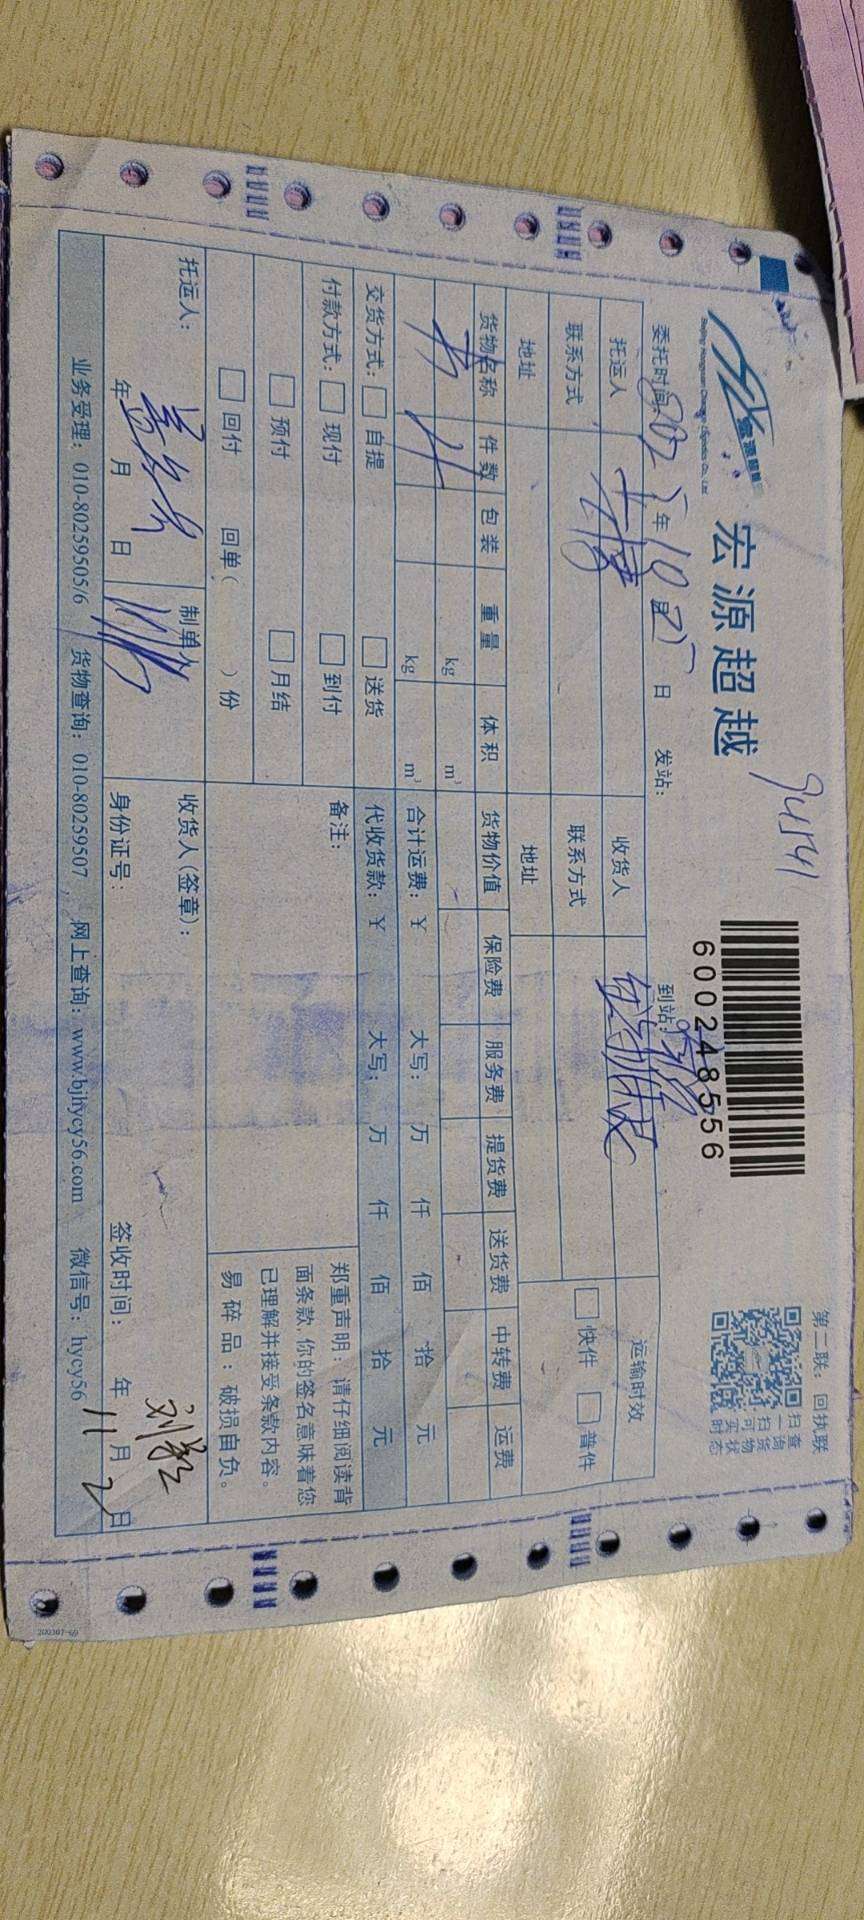 第二联：回执联
宏源超越
94541
600248556
扫一扫可买
查询货物状态
委托时间：2025年10月25日 发站： 到站：
托运人 收货人 运输时效
联系方式 联系方式 快件 普件
地址 地址
货物名称 件数 包装 重量 体积 货物价值 保险费 服务费 提货费 送货费 中转费 运费
kg m³
kg m³ 合计运费：¥ 大写： 万 仟 佰 拾 元
交货方式： 自提 送货 代收货款：¥ 大写： 万 仟 佰 拾 元
付款方式： 现付 到付 备注：
预付 月结
回付 回单( )份
郑重声明：请仔细阅读背
面条款,你的签名意味着您
已理解并接受条款内容。
易碎品：破损自负。
托运人： 制单人 收货人(签章)：
年 月 日 身份证号： 签收时间： 年 11月 2日
业务受理：010-80259505/6 货物查询：010-80259507 网上查询：www.bjhycy56.com 微信号：hycy56